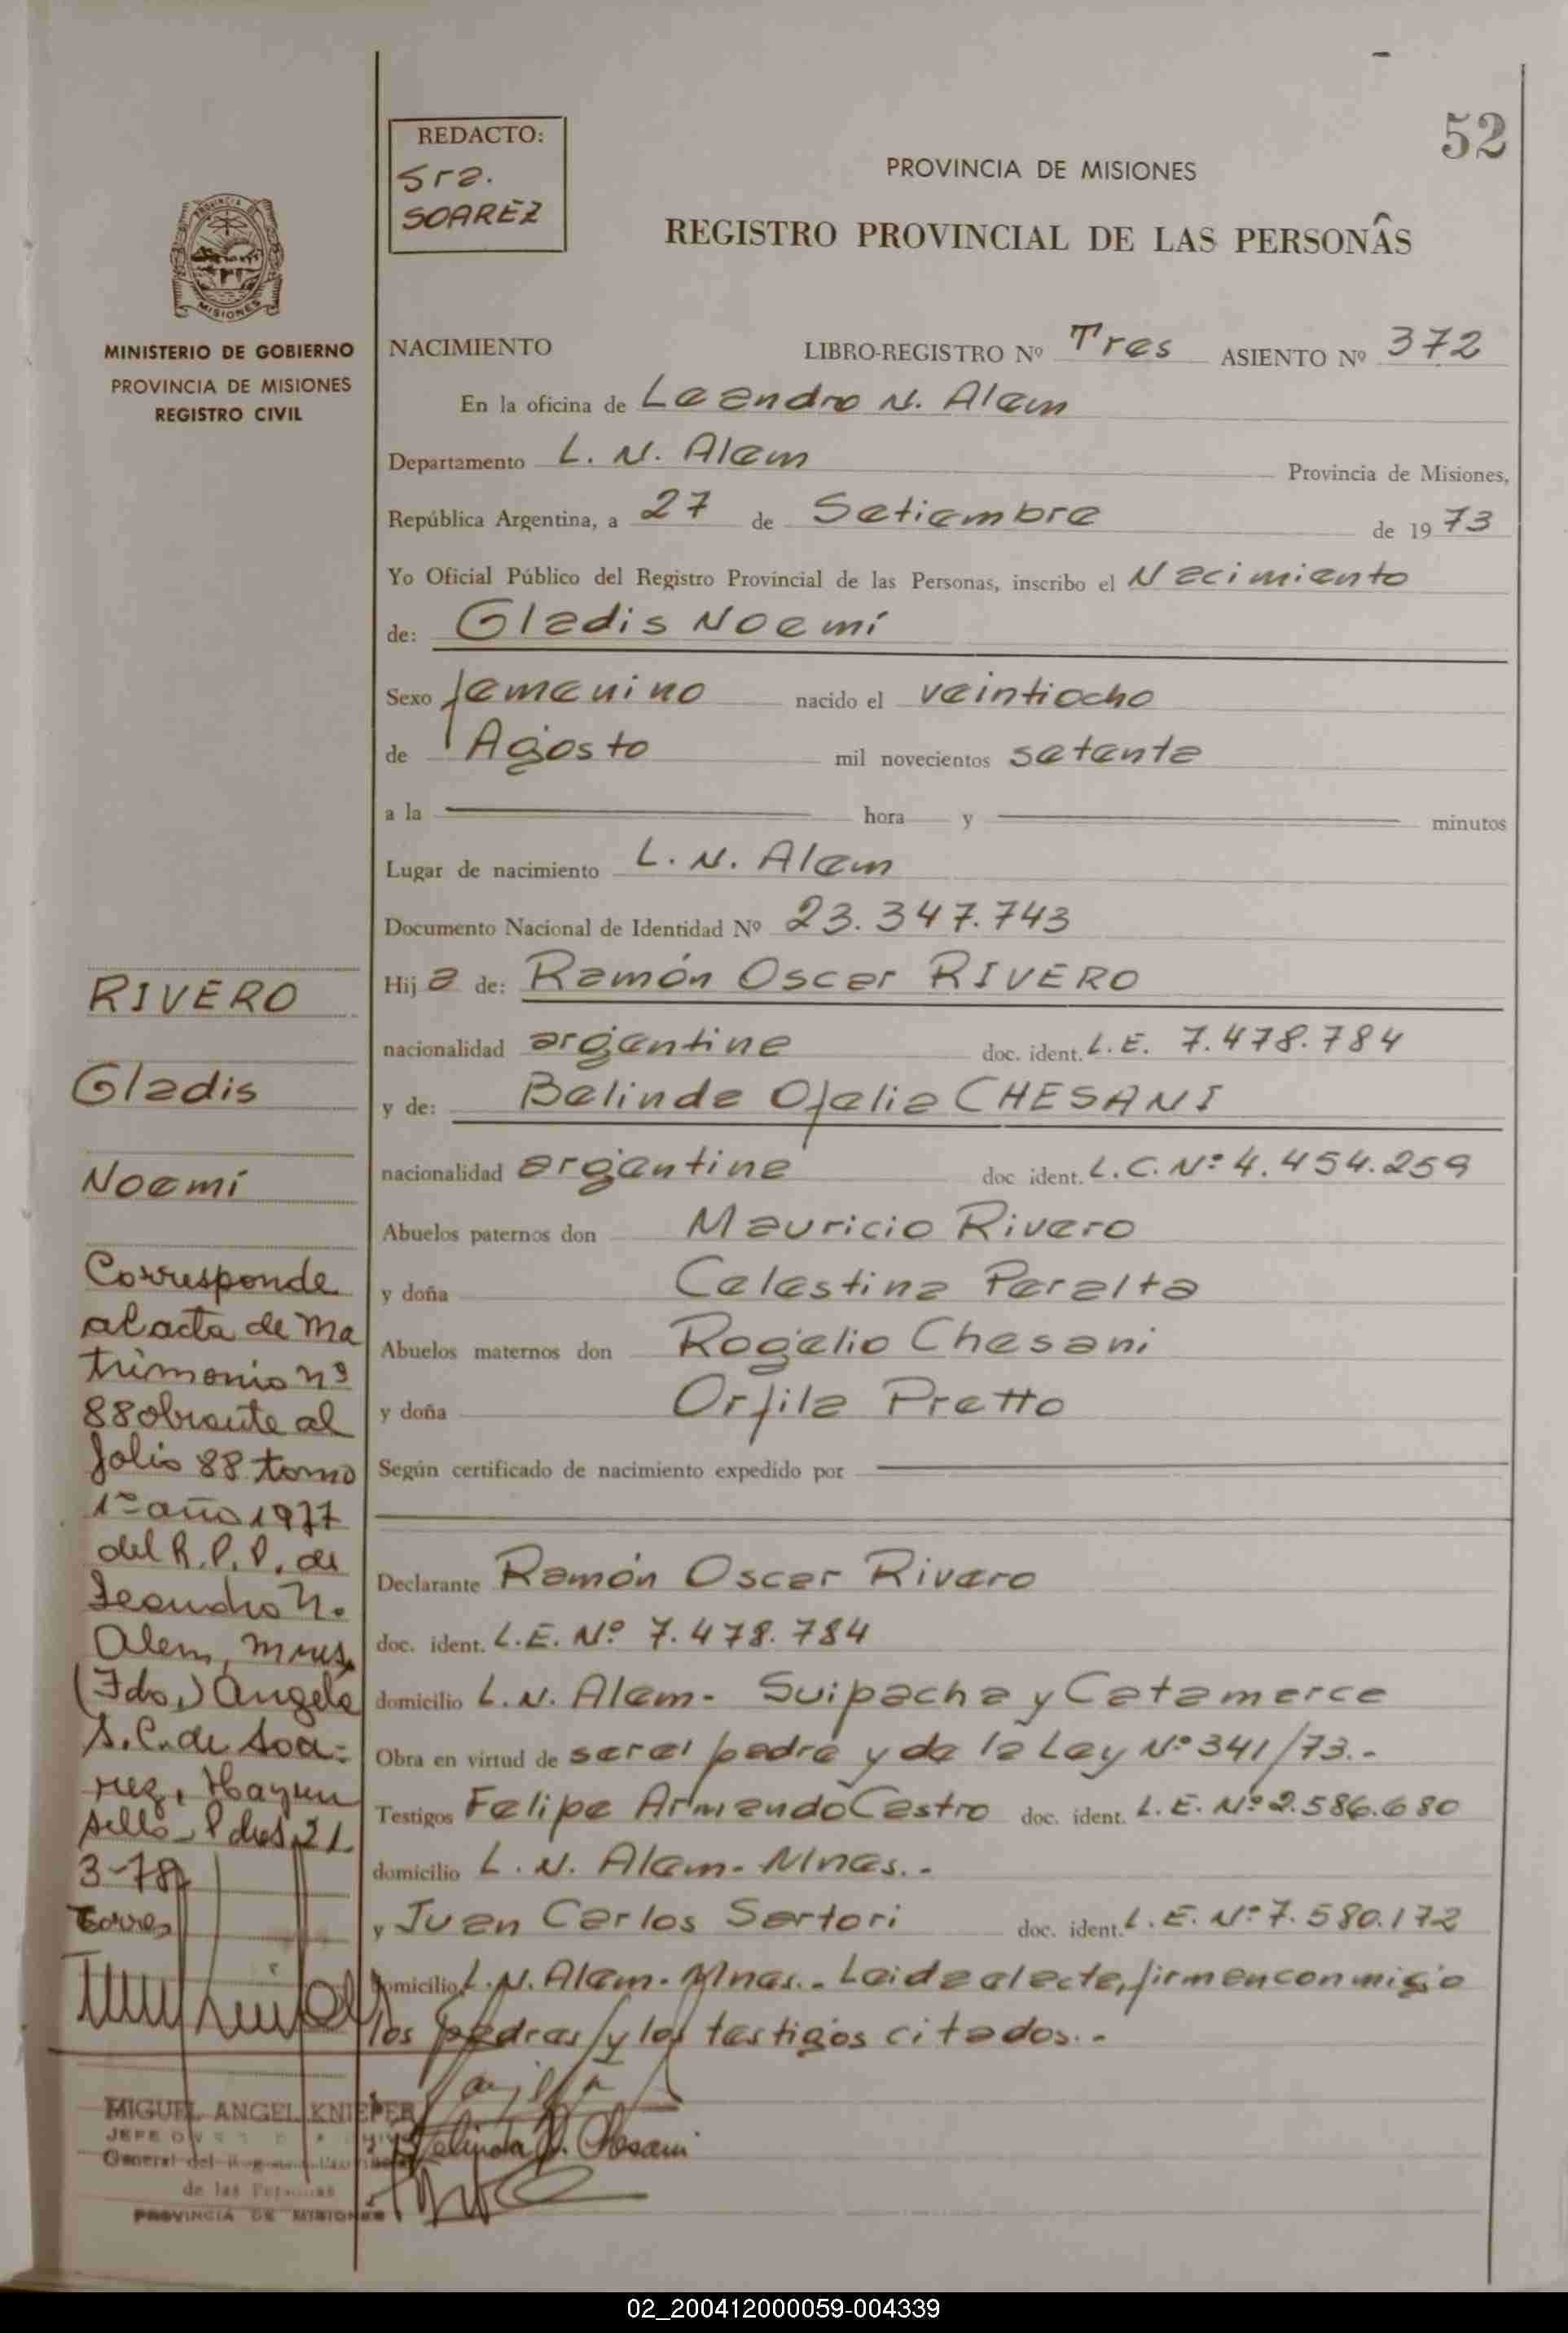 52
REDACTO:
Sra.
SOAREZ
PROVINCIA DE MISIONES
REGISTRO PROVINCIAL DE LAS PERSONAS
MISIONES
MINISTERIO DE GOBIERNO
PROVINCIA DE MISIONES
REGISTRO CIVIL
NACIMIENTO LIBRO-REGISTRO Nº Tres ASIENTO Nº 372
En la oficina de Leandro N. Alem
Departamento L. N. Alem Provincia de Misiones,
República Argentina, a 27 de Setiembre de 1973
Yo Oficial Público del Registro Provincial de las Personas, inscribo el Nacimiento
de: Gladis Noemí
Sexo femenino nacido el veintiocho
de Agosto mil novecientos setenta
a la hora y minutos
Lugar de nacimiento L. N. Alem
Documento Nacional de Identidad Nº 23.347.743
Hija de: Ramón Oscar RIVERO
nacionalidad argentina doc. ident. L.E. 7.478.784
y de: Belinda Ofelia CHESANI
nacionalidad argentina doc ident. L.C. Nº 4.454.259
Abuelos paternos don Mauricio Rivero
y doña Celestina Peralta
Abuelos maternos don Rogelio Chesani
y doña Orfila Pretto
Según certificado de nacimiento expedido por
Declarante Ramón Oscar Rivero
doc. ident. L.E. Nº 7.478.784
domicilio L.N. Alem- Suipacha y Catamarca
Obra en virtud de ser el padre y de la Ley Nº 341/73.-
Testigos Felipe Armando Castro doc. ident. L.E. Nº 2.586.680
domicilio L.N. Alem- Mnes..-
y Juan Carlos Sartori doc. ident. L.E. Nº 7.580.172
domicilio L.N. Alem- Mnes..- Leida el acta, firman conmigo
los padres y los testigos citados..-
Belinda O. Chesani
RIVERO
Gladis
Noemí
Corresponde
al acta de Ma
trimonio nº
88 obrante al
folio 88 tomo
1º año 1977
del R.P.P. de
Leandro N.
Alem, Mnes.
(Fdo.) Angela
S.C. de Soa-
rez, Hay un
sello- Pdas, 21
3-78
Torres
MIGUEL ANGEL KNIEPER
JEFE
General del
de las Personas
PROVINCIA DE MISIONES
02_200412000059-004339